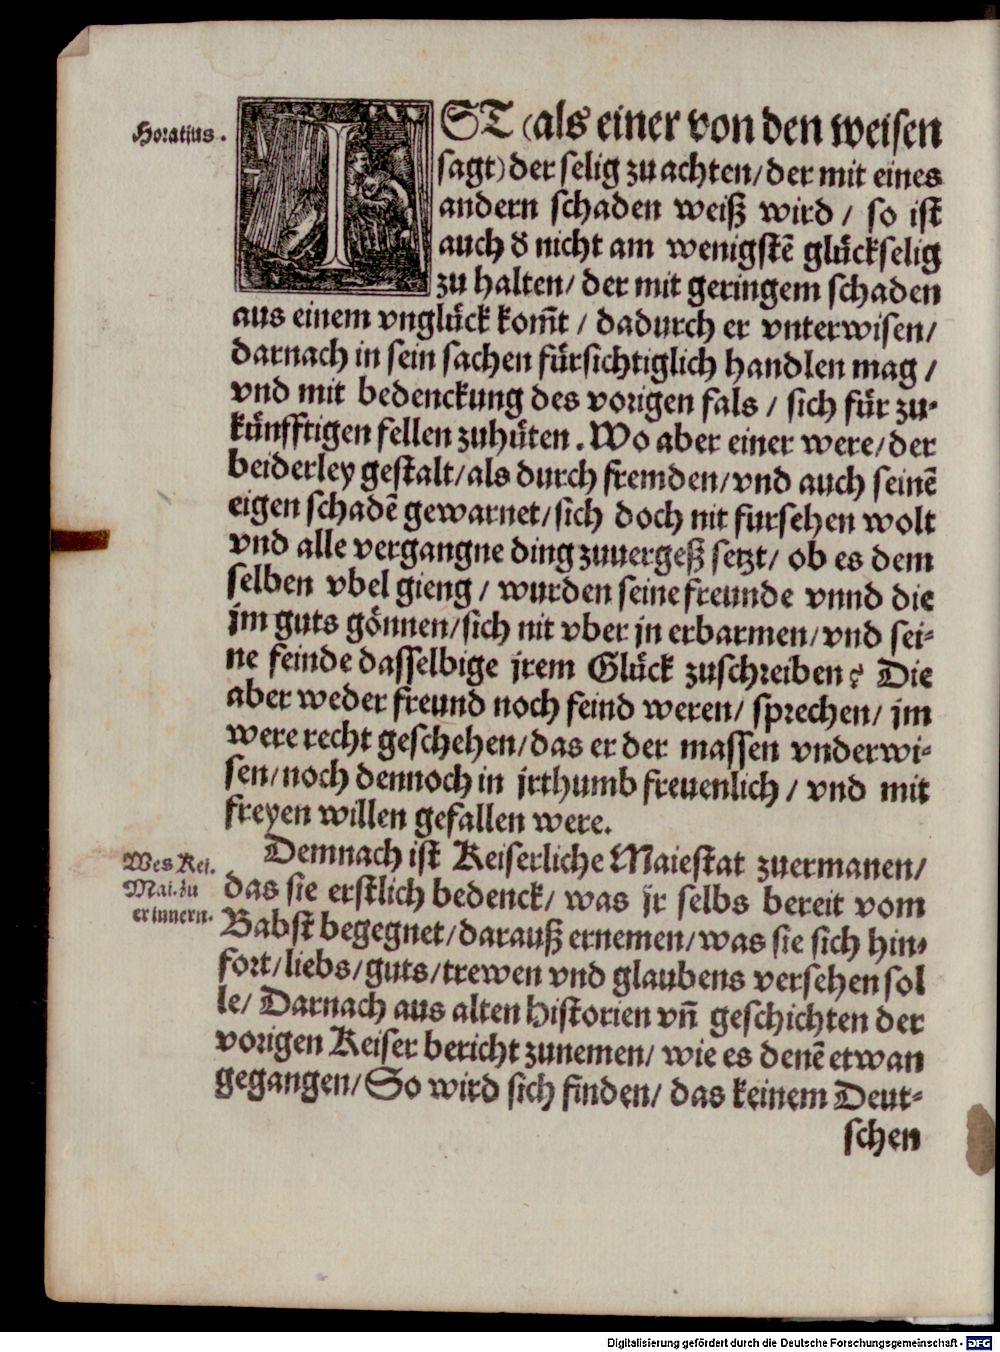 Horatius.
IST (als einer von den weisen
sagt) der selig zu achten/ der mit eines
andern schaden weiß wird / so ist
auch d̕ nicht am wenigstē glückselig
zu halten/ der mit geringem schaden
aus einem vnglück kom̄t / dadurch er vnterwisen/
darnach in sein sachen fürsichtiglich handlen mag /
vnd mit bedenckung des vorigen fals / sich für zu-
künfftigen fellen zuhüten. Wo aber einer were/ der
beiderley gestalt/ als durch fremden/ vnd auch seinē
eigen schadē gewarnet/ sich doch nit fursehen wolt
vnd alle vergangne ding zuuergeß setzt/ ob es dem
selben vbel gieng / wurden seine freunde vnnd die
jm guts gönnen/ sich nit vber jn erbarmen/ vnd sei-
ne feinde dasselbige jrem Glück zuschreiben? Die
aber weder freund noch feind weren/ sprechen/ jm
were recht geschehen/ das er der massen vnderwi-
sen/ noch dennoch in jrthumb freuenlich / vnd mit
freyen willen gefallen were.
Wes Kei.
Mai. zu
erinnern.
Demnach ist Keiserliche Maiestat zuermanen/
das sie erstlich bedenck/ was jr selbs bereit vom
Babst begegnet/ darauß ernemen/ was sie sich hin-
fort/ liebs/ guts/ trewen vnd glaubens versehen sol
le/ Darnach aus alten Historien vn̄ geschichten der
vorigen Keiser bericht zunemen/ wie es denē etwan
gegangen/ So wird sich finden/ das keinem Deut-
schen
Digitalisierung gefördert durch die Deutsche Forschungsgemeinschaft - DFG